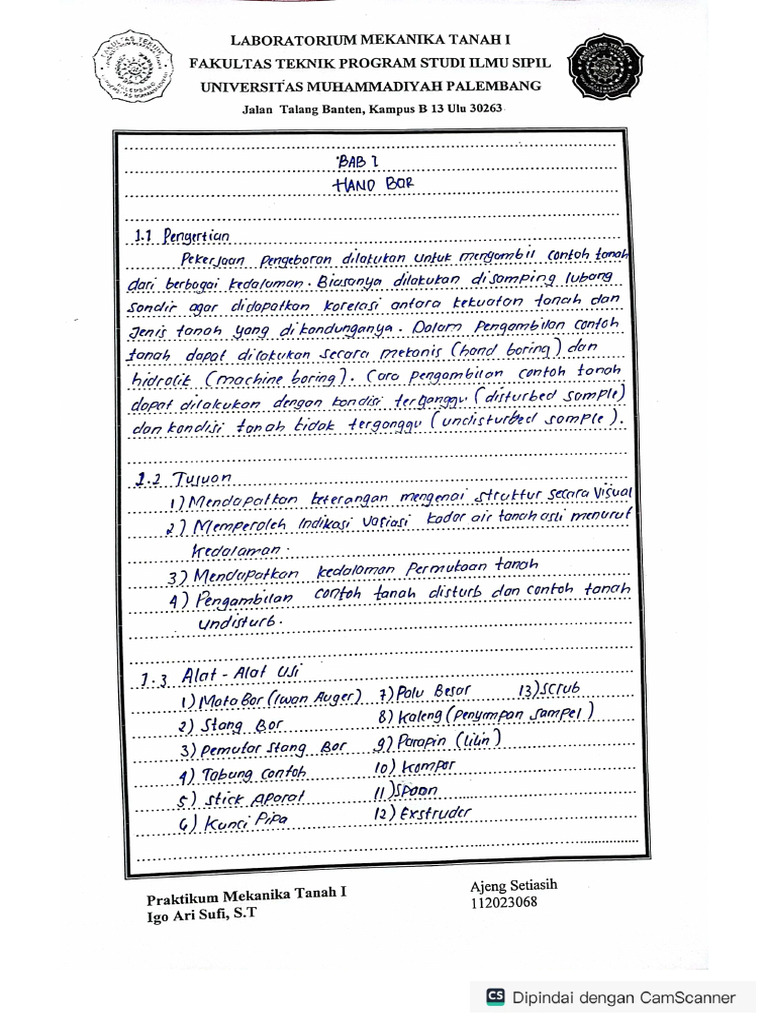 LABORATORIUM MEKANIKA TANAH I
FAKULTAS TEKNIK PROGRAM STUDI ILMU SIPIL
UNIVERSITAS MUHAMMADIYAH PALEMBANG
Jalan Talang Banten, Kampus B 13 Ulu 30263
BAB I
HAND BOR
1.1 Pengertian
Pekerjaan Pengeboran dilakukan untuk mengambil contoh tanah
dari berbagai kedalaman. Biasanya dilakukan disamping lubang
sondir agar didapatkan korelasi antara kekuatan tanah dan
Jenis tanah yang dikandunganya. Dalam Pengambilan contoh
tanah dapat dilakukan secara mekanis (hand boring) dan
hidrolik (machine boring). Cara pengambilan contoh tanah
dapat dilakukan dengan kondisi terganggu (disturbed sample)
dan kondisi tanah tidak terganggu (undisturbed sample).
1.2 Tujuan
1) Mendapatkan keterangan mengenai struktur secara visual
2) Memperoleh Indikasi Variasi kadar air tanah asli menurut
kedalaman.
3) Mendapatkan kedalaman Permukaan tanah
4) Pengambilan contoh tanah disturb dan contoh tanah
undisturb.
1.3 Alat - Alat Uji
1) Mata Bor (Iwan Auger) 7) Palu Besar 13) scrub
2) Stang Bor 8) Kaleng (Penyimpan Sampel)
3) Pemutar Stang Bor 9) Parapin (lilin)
4) Tabung Contoh 10) Kompor
5) Stick Aparat 11) Spoon
6) Kunci Pipa 12) Exstruder
Praktikum Mekanika Tanah I
Igo Ari Sufi, S.T
Ajeng Setiasih
112023068
CS Dipindai dengan CamScanner